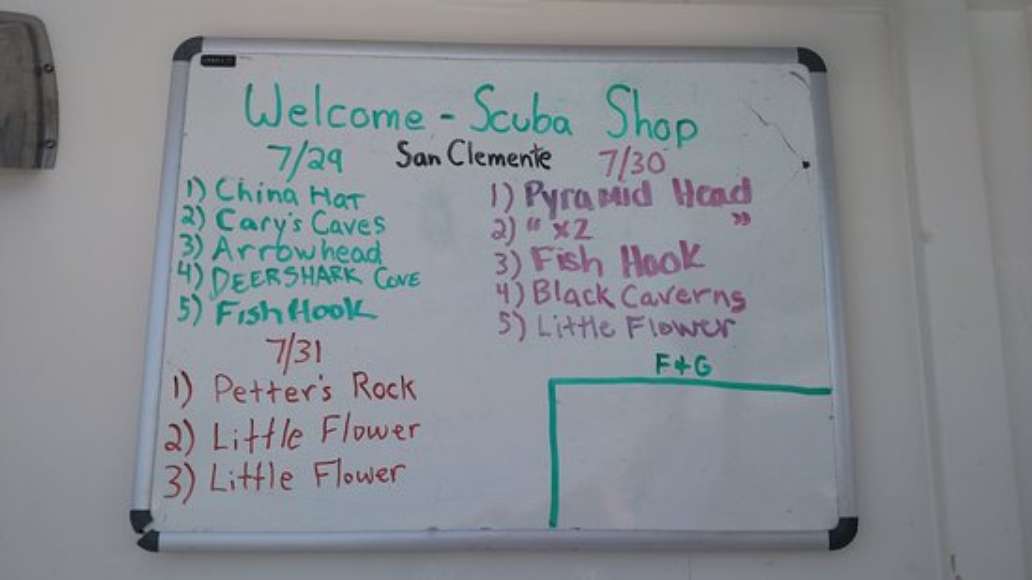 Welcome - Scuba Shop
San Clemente
7/29
1) China Hat
2) Cary's Caves
3) Arrowhead
4) DEERSHARK COVE
5) Fish Hook
7/30
1) Pyramid Head
2) " x2 "
3) Fish Hook
4) Black Caverns
5) Little Flower
7/31
1) Petter's Rock
2) Little Flower
3) Little Flower
F+G